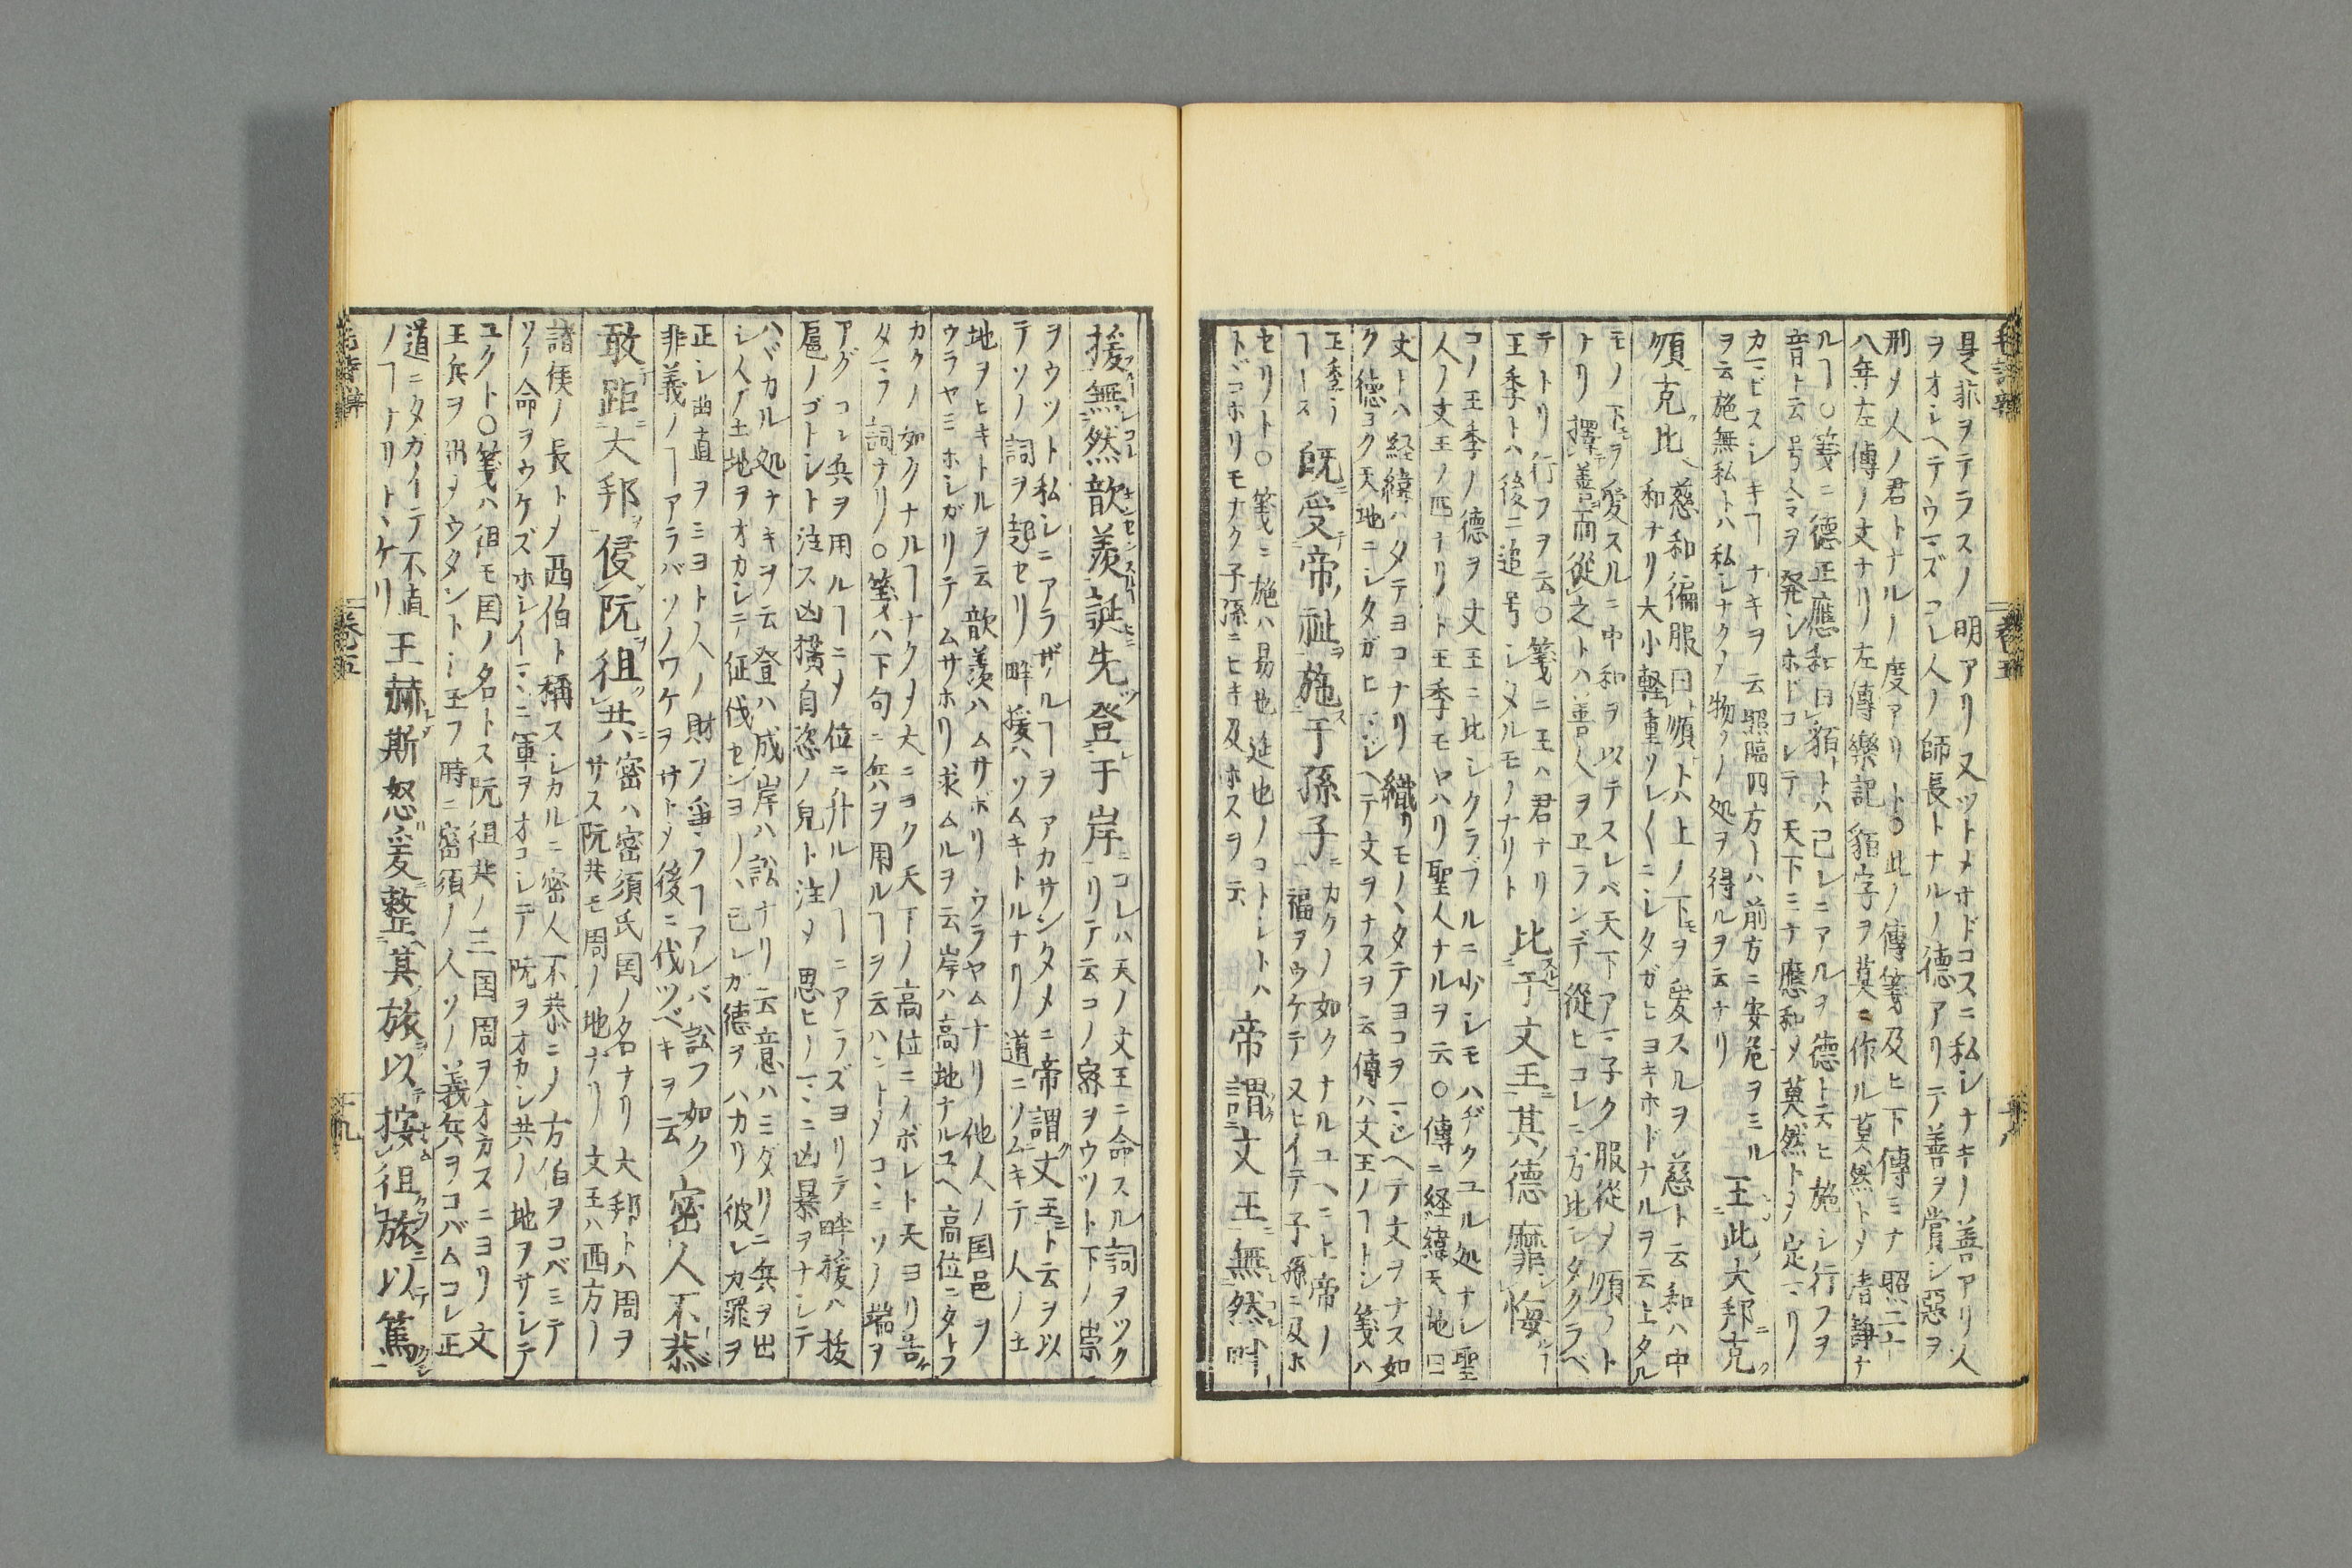 毛詩辨
卷五
十八
是非ヲテラスノ明アリ又ツトメオドコスニ私シナキノ善アリ人
ヲオシヘテウマズコレ人ノ師長トナルノ德アリテ善ヲ賞シ惡ヲ
刑メ人ノ君トナルノ度アリト○此ノ傳箋及ヒ下傳ミナ照二十
八年左傳ノ文ナリ左傳樂記貊字ヲ莫ニ作ル莫然トメ清靜ナ
ルヿ○箋ニ德正應和曰貊トハ己レニアルヲ德ト云ヒ施シ行フヲ
音ト云号令ヲ発シホドコレテ天下ミナ應和メ莫然トメ定マリ
カマビスシキヿナキヲ云照臨四方トハ前方ニ安危ヲミル
ヲ云施無私トハ私シナクメ物ノ処ヲ得ルヲ云ナリ
王此大邦克
順克比
慈和徧服曰順トハ上ノ下モヲ愛スルヲ慈ト云和ハ中
和ナリ大小輕重ソレ〱ニシタガヒヨキホドナルヲ云上タル
モノ下モヲ愛スルニ中和ヲ以テスレバ天下アマ子ク服從メ順フト
ナリ擇善而從之トハ善人ヲヱランデ從ヒコレニ方比シタクラベ
テトリ行フヲ云○箋ニ王ハ君ナリ
王季トハ後ニ追号シメルモノナリト
比于文王其德靡悔
コノ王季ノ德ヲ文王ニ比シクラブルニ少シモハヂクユル処ナシ聖
人ノ文王ノ匹ナリノト王季モヤハリ聖人ナルヲ云○傳ニ経緯天地曰
文トハ経緯ハタテヨコナリ織リモノヽタテヨコヲマジヘテ文ヲナス如
ク德ヨク天地ニシタガヒマジヘテ文ヲナスヲ云傳ハ文王ノヿトシ箋ハ
王季ノ
ヿトス
既受帝祉施于孫子
カクノ如クナルユヘニ上帝ノ
福ヲウケテ又ヒイテ子孫ニ及ホ
セリト○箋ニ施ハ易也延也ノコトシトハ
トドコホリモナク子孫ニヒキ及ホスヲ云
帝謂文王無然畔
援無然歆羨誕先登于岸
コレハ天ノ文王ニ命スル詞ヲツク
リテ云コノ密ヲウツト下ノ崇
ヲウツト私シニアラザルヿヲアカサンタメニ帝謂文王ト云ヲ以
テソノ詞ヲ起セリ畔援ハソムキトルナリ道ニソムキテ人ノ土
地ヲヒキトルヲ云歆羨ハムサボリウラヤムナリ他人ノ国邑ヲ
ウラヤミホシガリテムサホリ求ムルヲ云岸ハ高地ナルユヘ高位ニタトフ
カクノ如クナルヿナクメ大ニヨク天下ノ高位ニノボレト天ヨリ告ケ
タマフ詞ナリ○箋ハ下句ニ兵ヲ用ルヿヲ云ハントメコヽニソノ端ヲ
アグコレ兵ヲ用ルヿニメ位ニ升ルノヿニアラズヨリテ畔援ハ拔
扈ノゴトシト注ス凶横自恣ノ皃ト注メ思ヒノマヽニ凶暴ヲナシテ
ハヾカル処ナキヲ云登ハ成岸ハ訟ナリ云意ハミダリニ兵ヲ出
シ人ノ土地ヲオカシテ征伐センヨリハ己レガ德ヲハカリ彼レカ罪ヲ
正シ曲直ヲミヨト人ノ財ヲ爭フヿアレバ訟フ如ク
非義ノヿアラバソノワケヲサトメ後ニ伐ツベキヲ云
密人不恭
敢距大邦侵阮徂共
密ハ密須氏国ノ名ナリ大邦トハ周ヲ
サス阮共モ周ノ地ナリ文王ハ西方ノ
諸侯ノ長トメ西伯ト稱スシカルニ密人不恭ニメ方伯ヲコバミテ
ソノ命ヲウケズホシイマヽニ軍ヲオコシテ阮ヲオカシ共ノ地ヲサシテ
ユクト○箋ハ徂モ国ノ名トス阮徂共ノ三国周ヲオカスニヨリ文
王兵ヲ出メウタントシ玉フ時ニ密須ノ人ソノ義兵ヲコバムコレ正
道ニタカイテ不直
ノヿナリトヽケリ
王赫斯怒爰整其旅以按徂旅以篤
毛詩辨
卷五
十九